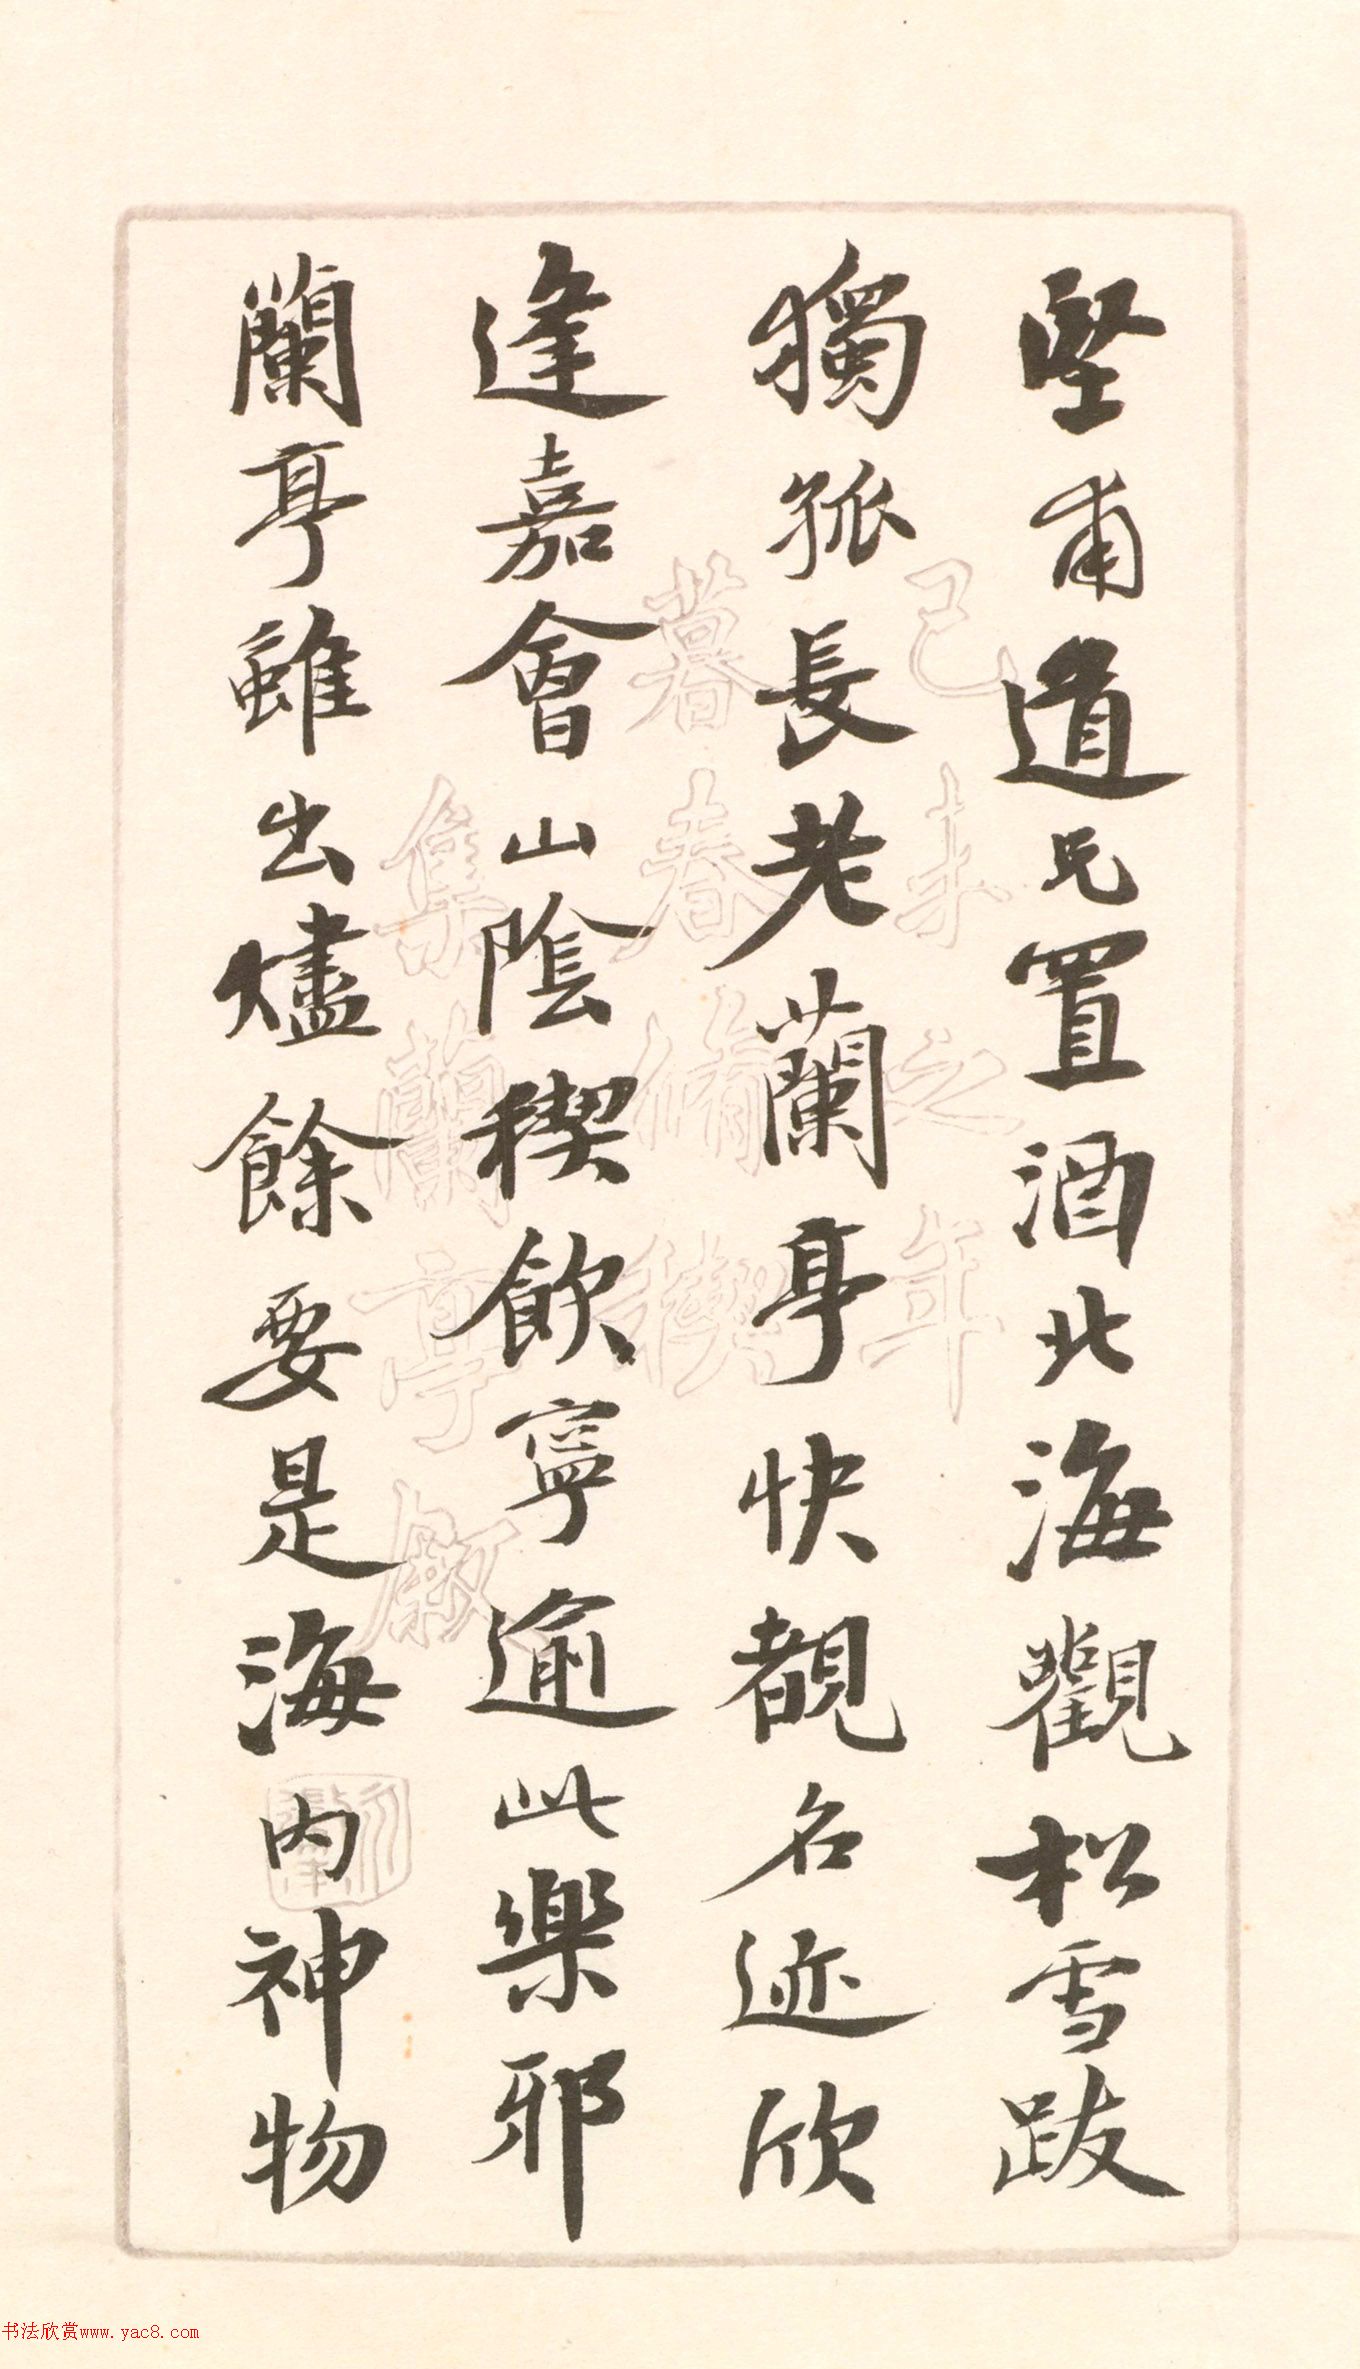 堅甫道兄置酒北海觀松雪跋
獨孤長老蘭亭快覩名迹欣
逢嘉會山陰稧飲寧逾此樂邪
蘭亭雖出燼餘要是海内神物
己未之年
暮春脩稧
集蘭亭敘
书法欣赏www.yac8.com